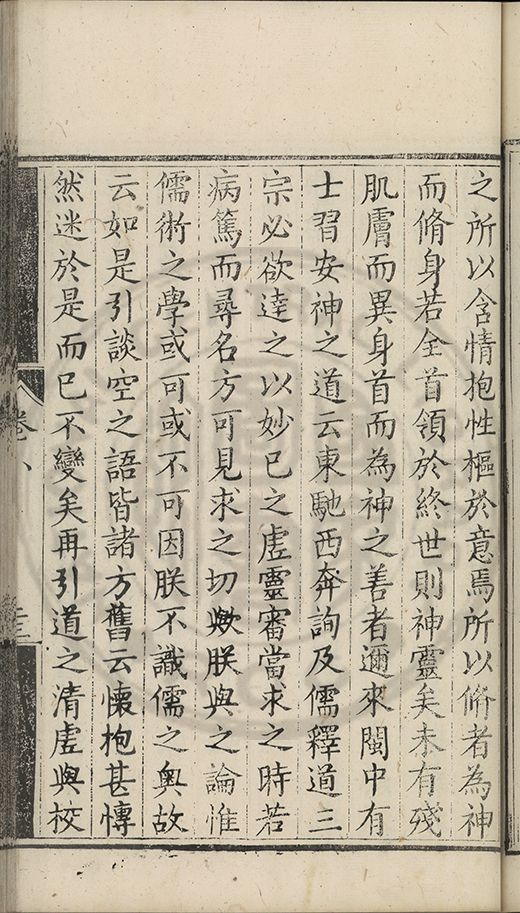 之所以含情抱性樞於意焉所以脩者為神
而脩身若全首領於終世則神靈矣未有殘
肌膚而異身首而為神之善者邇來閩中有
士習安神之道云東馳西奔詢及儒釋道三
宗必欲達之以妙己之虗靈審當求之時若
病篤而尋名方可見求之切歟朕與之論惟
儒術之學或可或不可因朕不識儒之奧故
云如是引談空之語皆諸方舊云懷抱甚慱
然迷於是而已不變矣再引道之清虗與校
卷八